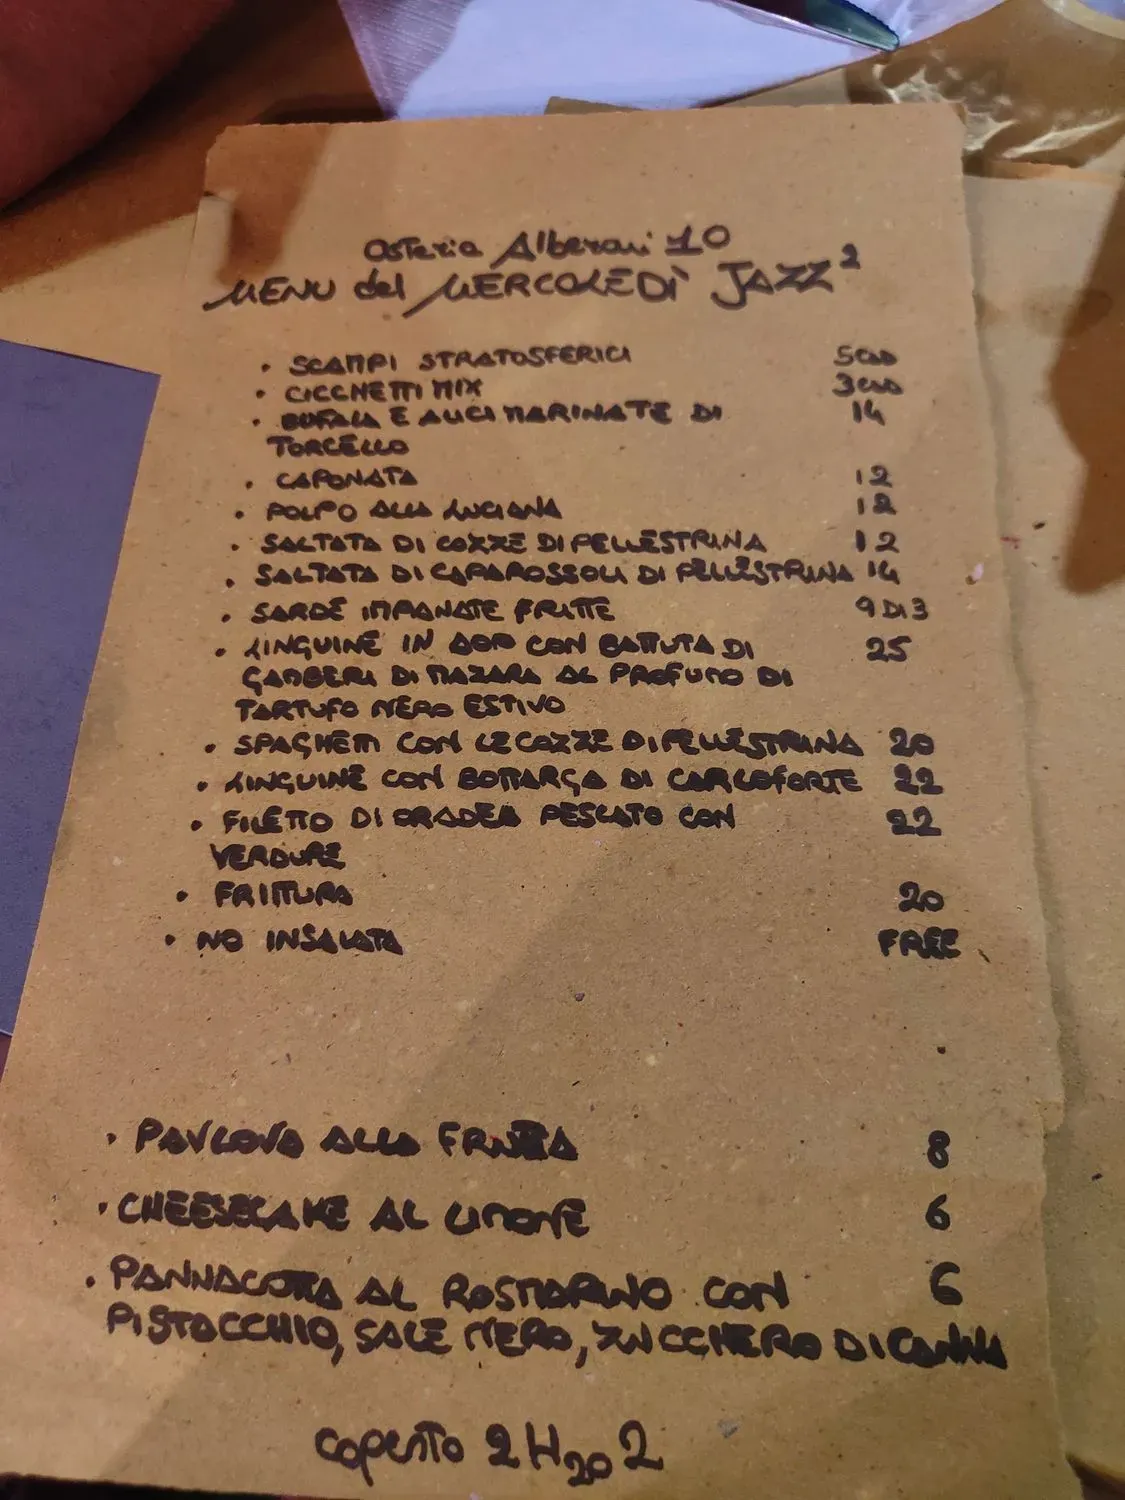 Osteria Alberoni 10
MENU del MERCOLEDÌ JAZZ²
• SCAMPI STRATOSFERICI 5 CAD
• CICCHETTI MIX 3 CAD
• BUFALA E ALICI MARINATE DI 14
TORCELLO
• CAPONATA 12
• POLPO ALLA LUCIANA 12
• SALTATA DI COZZE DI PELLESTRINA 12
• SALTATA DI CAPAROSSOLI DI PELLESTRINA 14
• SARDE IMPANATE FRITTE 9 DI 3
• LINGUINE IN AOP CON BATTUTA DI 25
GAMBERI DI MAZARA AL PROFUMO DI
TARTUFO NERO ESTIVO
• SPAGHETTI CON LE COZZE DI PELLESTRINA 20
• LINGUINE CON BOTTARGA DI CARLOFORTE 22
• FILETTO DI ORADEA PESCATO CON 22
VERDURE
• FRITTURA 20
• NO INSALATA FREE
• PAVLOVA ALLA FRUTTA 8
• CHEESECAKE AL LIMONE 6
• PANNACOTTA AL ROSMARINO CON 6
PISTACCHIO, SALE NERO, ZUCCHERO DI CANNA
coperto 2 H₂O 2